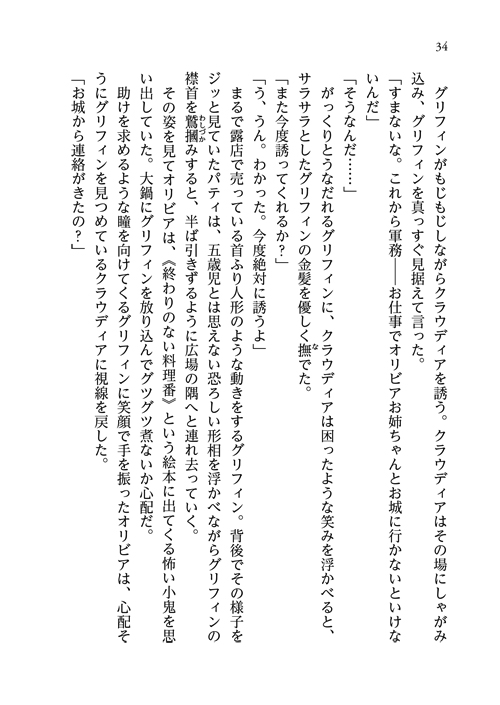 34
グリフィンがもじもじしながらクラウディアを誘う。クラウディアはその場にしゃがみ
込み、グリフィンを真っすぐ見据えて言った。
「すまないな。これから軍務――お仕事でオリビアお姉ちゃんとお城に行かないといけな
いんだ」
「そうなんだ……」
がっくりとうなだれるグリフィンに、クラウディアは困ったような笑みを浮かべると、
サラサラとしたグリフィンの金髪を優しく撫なでた。
「また今度誘ってくれるか?」
「う、うん。わかった。今度絶対に誘うよ」
まるで露店で売っている首ふり人形のような動きをするグリフィン。背後でその様子を
ジッと見ていたパティは、五歳児とは思えない恐ろしい形相を浮かべながらグリフィンの
襟首を鷲摑わしづかみすると、半ば引きずるように広場の隅へと連れ去っていく。
その姿を見てオリビアは、《終わりのない料理番》という絵本に出てくる怖い小鬼を思
い出していた。大鍋にグリフィンを放り込んでグツグツ煮ないか心配だ。
助けを求めるような瞳を向けてくるグリフィンに笑顔で手を振ったオリビアは、心配そ
うにグリフィンを見つめているクラウディアに視線を戻した。
「お城から連絡がきたの?」